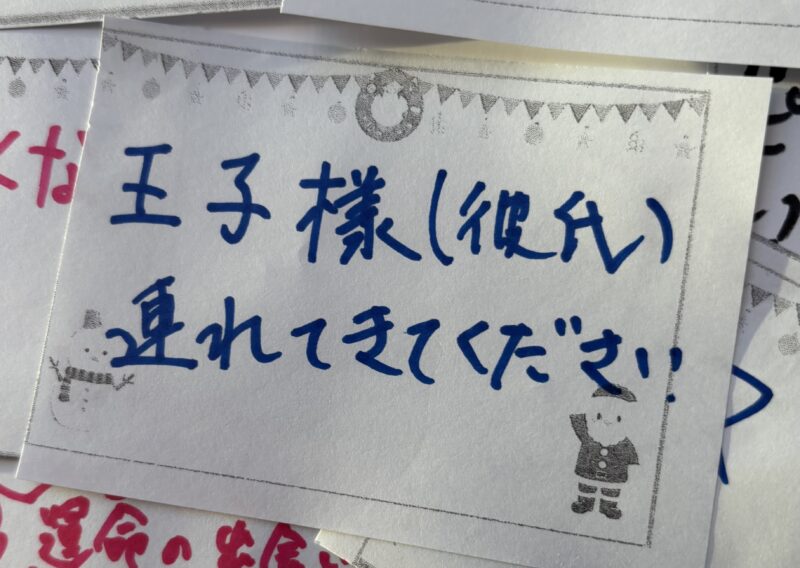 王子様(彼氏)
連れてきてください
くな
運命の出会い